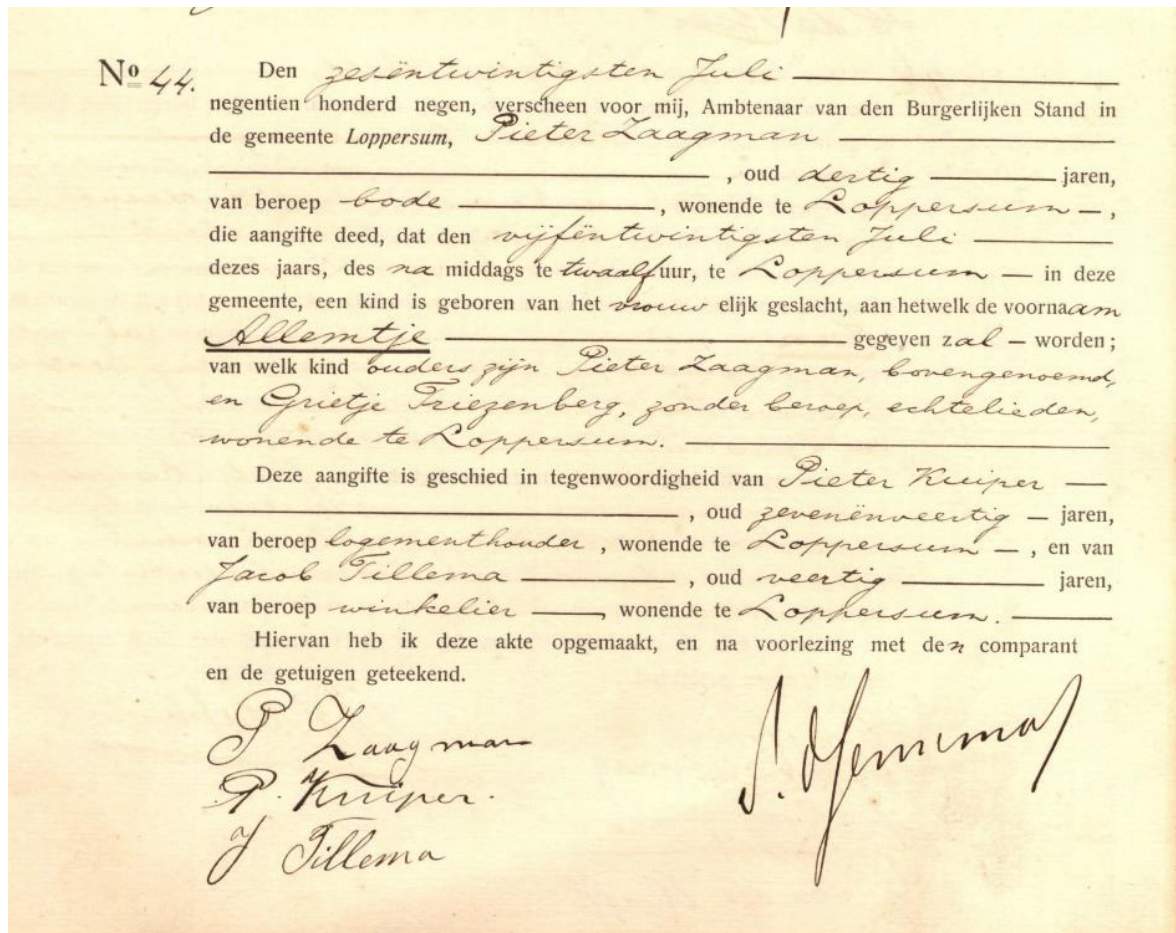 Nº 44. Den zesëntwintigsten Juli
negentien honderd negen, verscheen voor mij, Ambtenaar van den Burgerlijken Stand in
de gemeente Loppersum, Pieter Zaagman
, oud dertig jaren,
van beroep bode, wonende te Loppersum –,
die aangifte deed, dat den vijfëntwintigsten Juli
dezes jaars, des na middags te twaalf uur, te Loppersum — in deze
gemeente, een kind is geboren van het vrouw elijk geslacht, aan hetwelk de voornaam
Allemtje gegeven zal – worden;
van welk kind ouders zijn Pieter Zaagman, bovengenoemd,
en Grietje Friezenberg, zonder beroep, echtelieden,
wonende te Loppersum.
Deze aangifte is geschied in tegenwoordigheid van Pieter Kuiper —
, oud zevenënveertig — jaren,
van beroep logementhouder, wonende te Loppersum –, en van
Jacob Tillema, oud veertig jaren,
van beroep winkelier, wonende te Loppersum.
Hiervan heb ik deze akte opgemaakt, en na voorlezing met den comparant
en de getuigen geteekend.
P Zaagman
P. Kuiper.
J Tillema